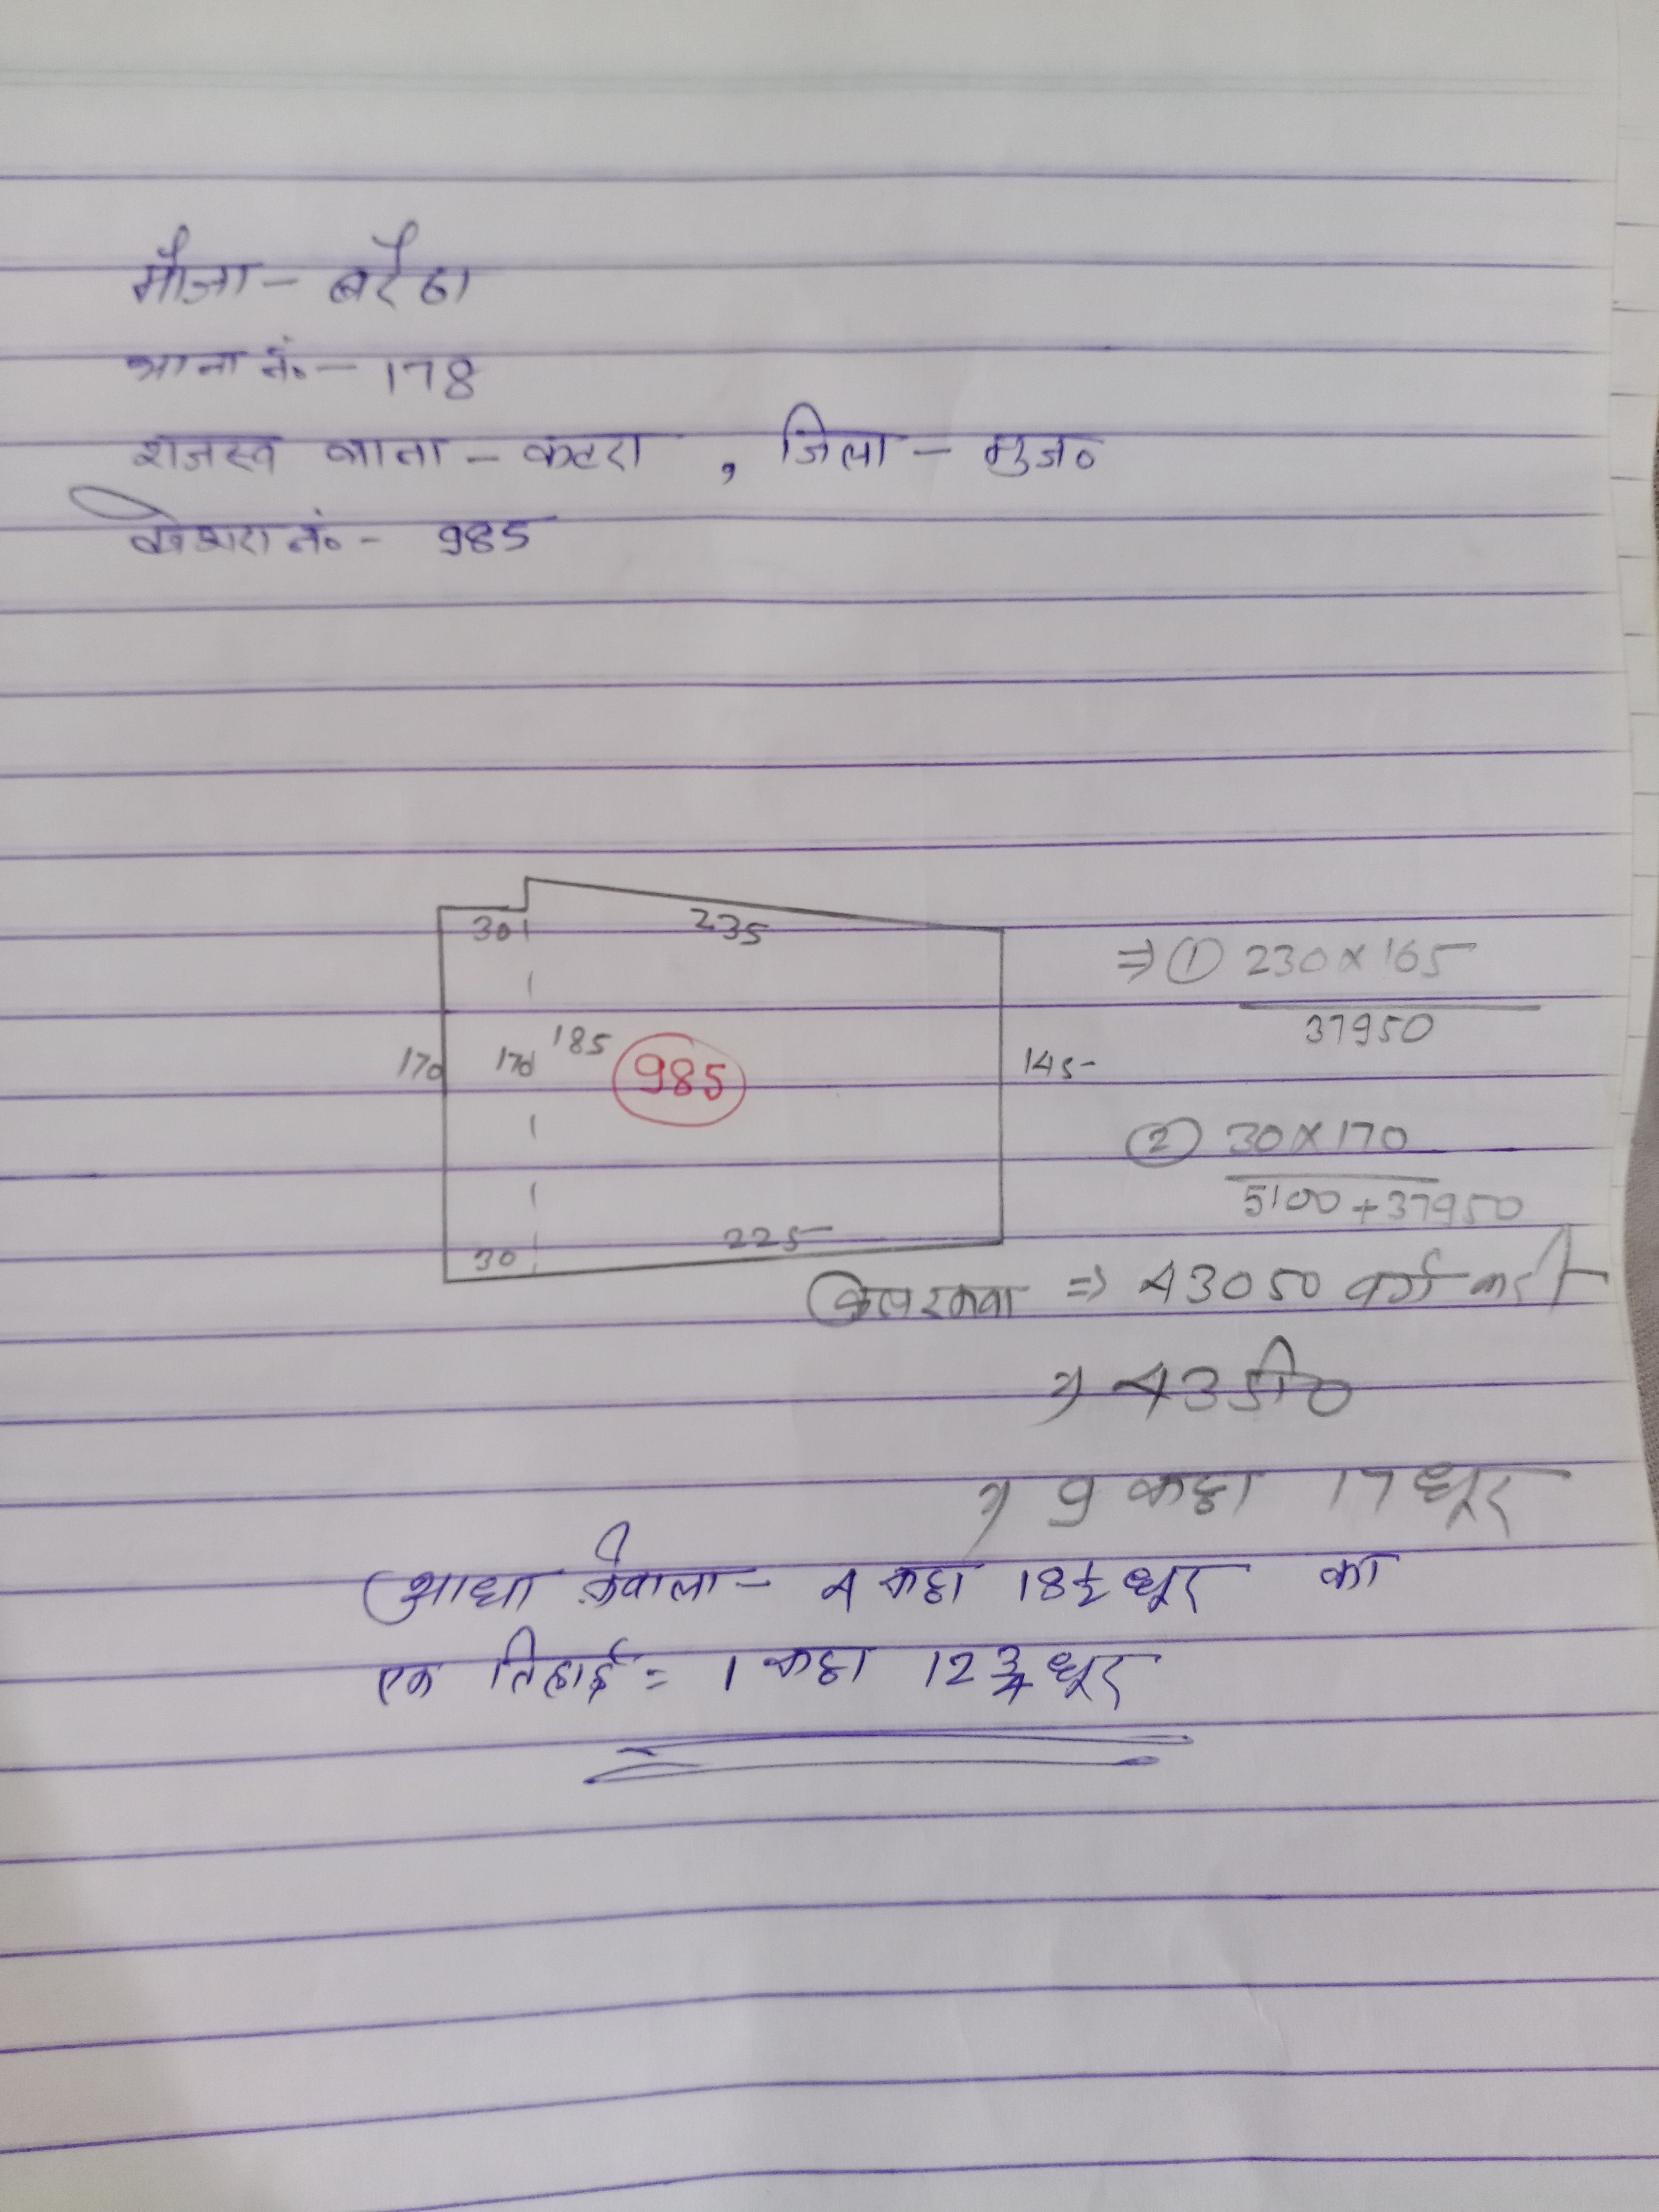 मौजा - बरैठा
थाना नं० - 178
राजस्व थाना - कटरा , जिला - मुज०
खेशरा नं० - 985
30 235
170 170 185 985 145
30 225
⇒ ① 230 × 165
37950
② 30 × 170
5100 + 37950
कुल रकवा ⇒ 43050 वर्ग कड़ी
⇒ 43 डी०
⇒ 9 कट्ठा 17 धूर
आधा केवाला - 4 कट्ठा 18 1/2 धूर का
एक तिहाई = 1 कट्ठा 12 3/4 धूर